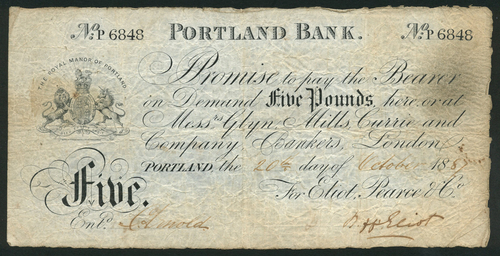 No. P 6848 PORTLAND BANK. No. P 6848
THE ROYAL MANOR OF PORTLAND
Promise to pay the Bearer
on Demand Five Pounds, here, or at
Messrs Glyn, Mills, Currie and
Company, Bankers, London
PORTLAND, the 20th day of October 188
For Eliot, Pearce & Co.
Five.
Entd.
Eliot